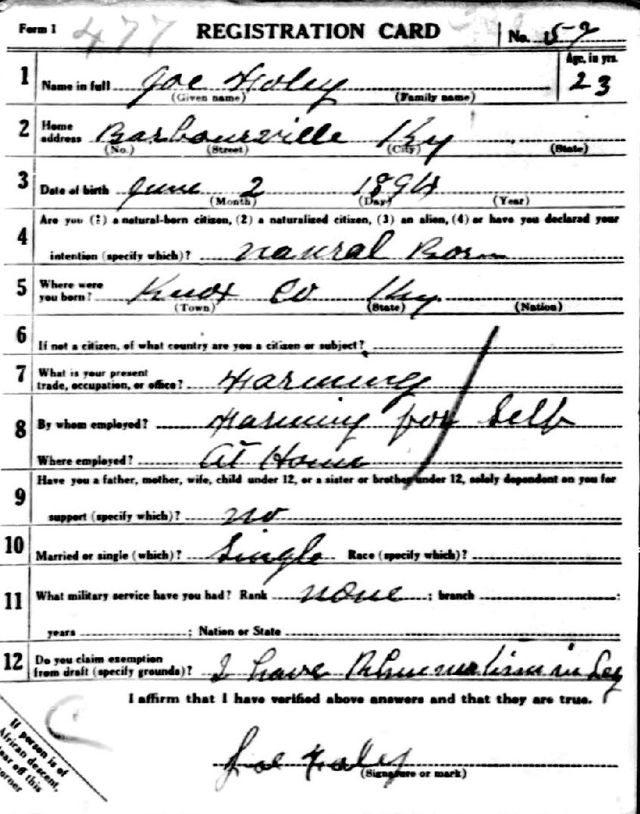 Form 1 477 REGISTRATION CARD No. 52
Age, in yrs.
1 Name in full Joe Foley 23
(Given name) (Family name)
2 Home address Barbourville Ky
(No.) (Street) (City) (State)
3 Date of birth June 2 1894
(Month) (Day) (Year)
Are you (1) a natural-born citizen, (2) a naturalized citizen, (3) an alien, (4) or have you declared your
4 intention (specify which)? naural Born
5 Where were you born? Knox Co Ky
(Town) (State) (Nation)
6 If not a citizen, of what country are you a citizen or subject?
7 What is your present trade, occupation, or office? Farming
8 By whom employed? Farming for Self
Where employed? At Home
9 Have you a father, mother, wife, child under 12, or a sister or brother under 12, solely dependent on you for
support (specify which)? no
10 Married or single (which)? Single Race (specify which)?
11 What military service have you had? Rank none ; branch
years ; Nation or State
12 Do you claim exemption from draft (specify grounds)? I have Rhumatism in Leg
I affirm that I have verified above answers and that they are true.
If person is of
African descent,
tear off this
corner
Joe Foley
(Signature or mark)